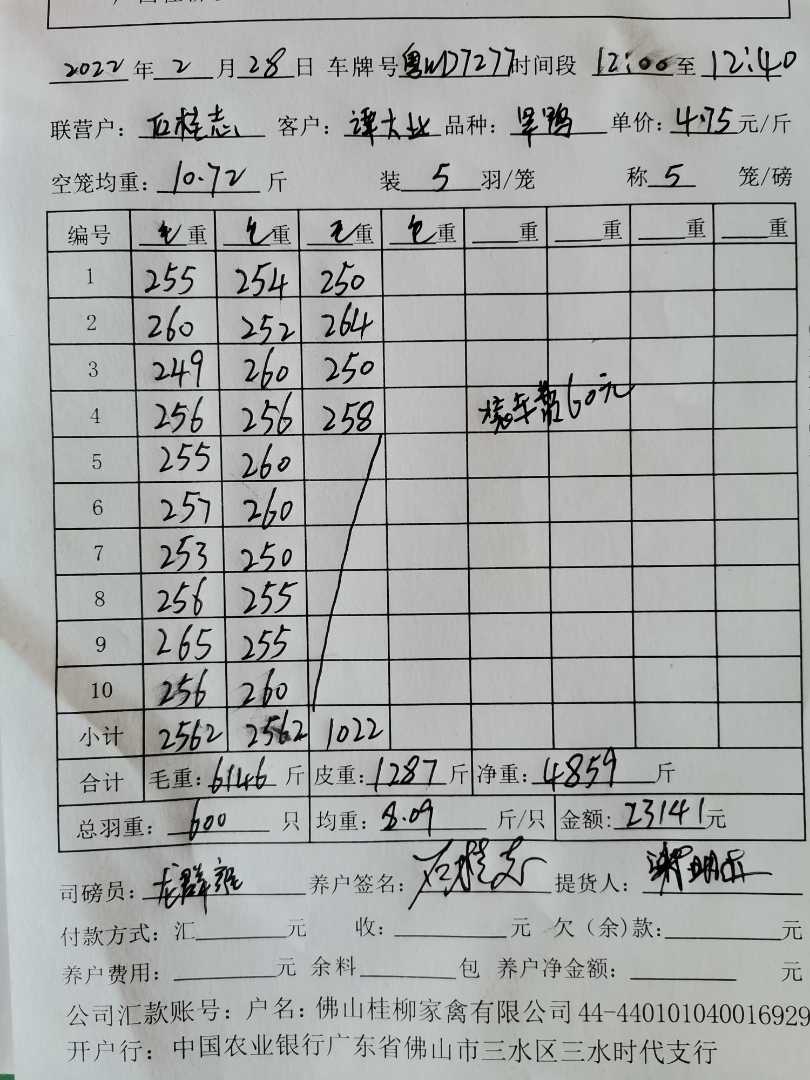 2022年2月28日 车牌号粤WD7277时间段 12:00至12:40
联营户：石桂志 客户：谭大业 品种：旱鸭 单价：4.75元/斤
空笼均重：10.72斤 装5羽/笼 称5笼/磅
编号 毛重 毛重 毛重 毛重 重 重 重 重
1 255 254 250
2 260 252 264
3 249 260 250
4 256 256 258 60元
5 255 260
6 257 260
7 253 250
8 256 255
9 265 255
10 256 260
小计 2562 2562 1022
合计 毛重：6146斤 皮重：1287斤 净重：4859斤
总羽重：600只 均重：8.09斤/只 金额：23141元
司磅员：龙群 养户签名：石桂志 提货人：
付款方式：汇 元 收： 元 欠（余)款： 元
养户费用： 元 余料 包 养户净金额： 元
公司汇款账号：户名：佛山桂柳家禽有限公司44-440101040016929
开户行：中国农业银行广东省佛山市三水区三水时代支行